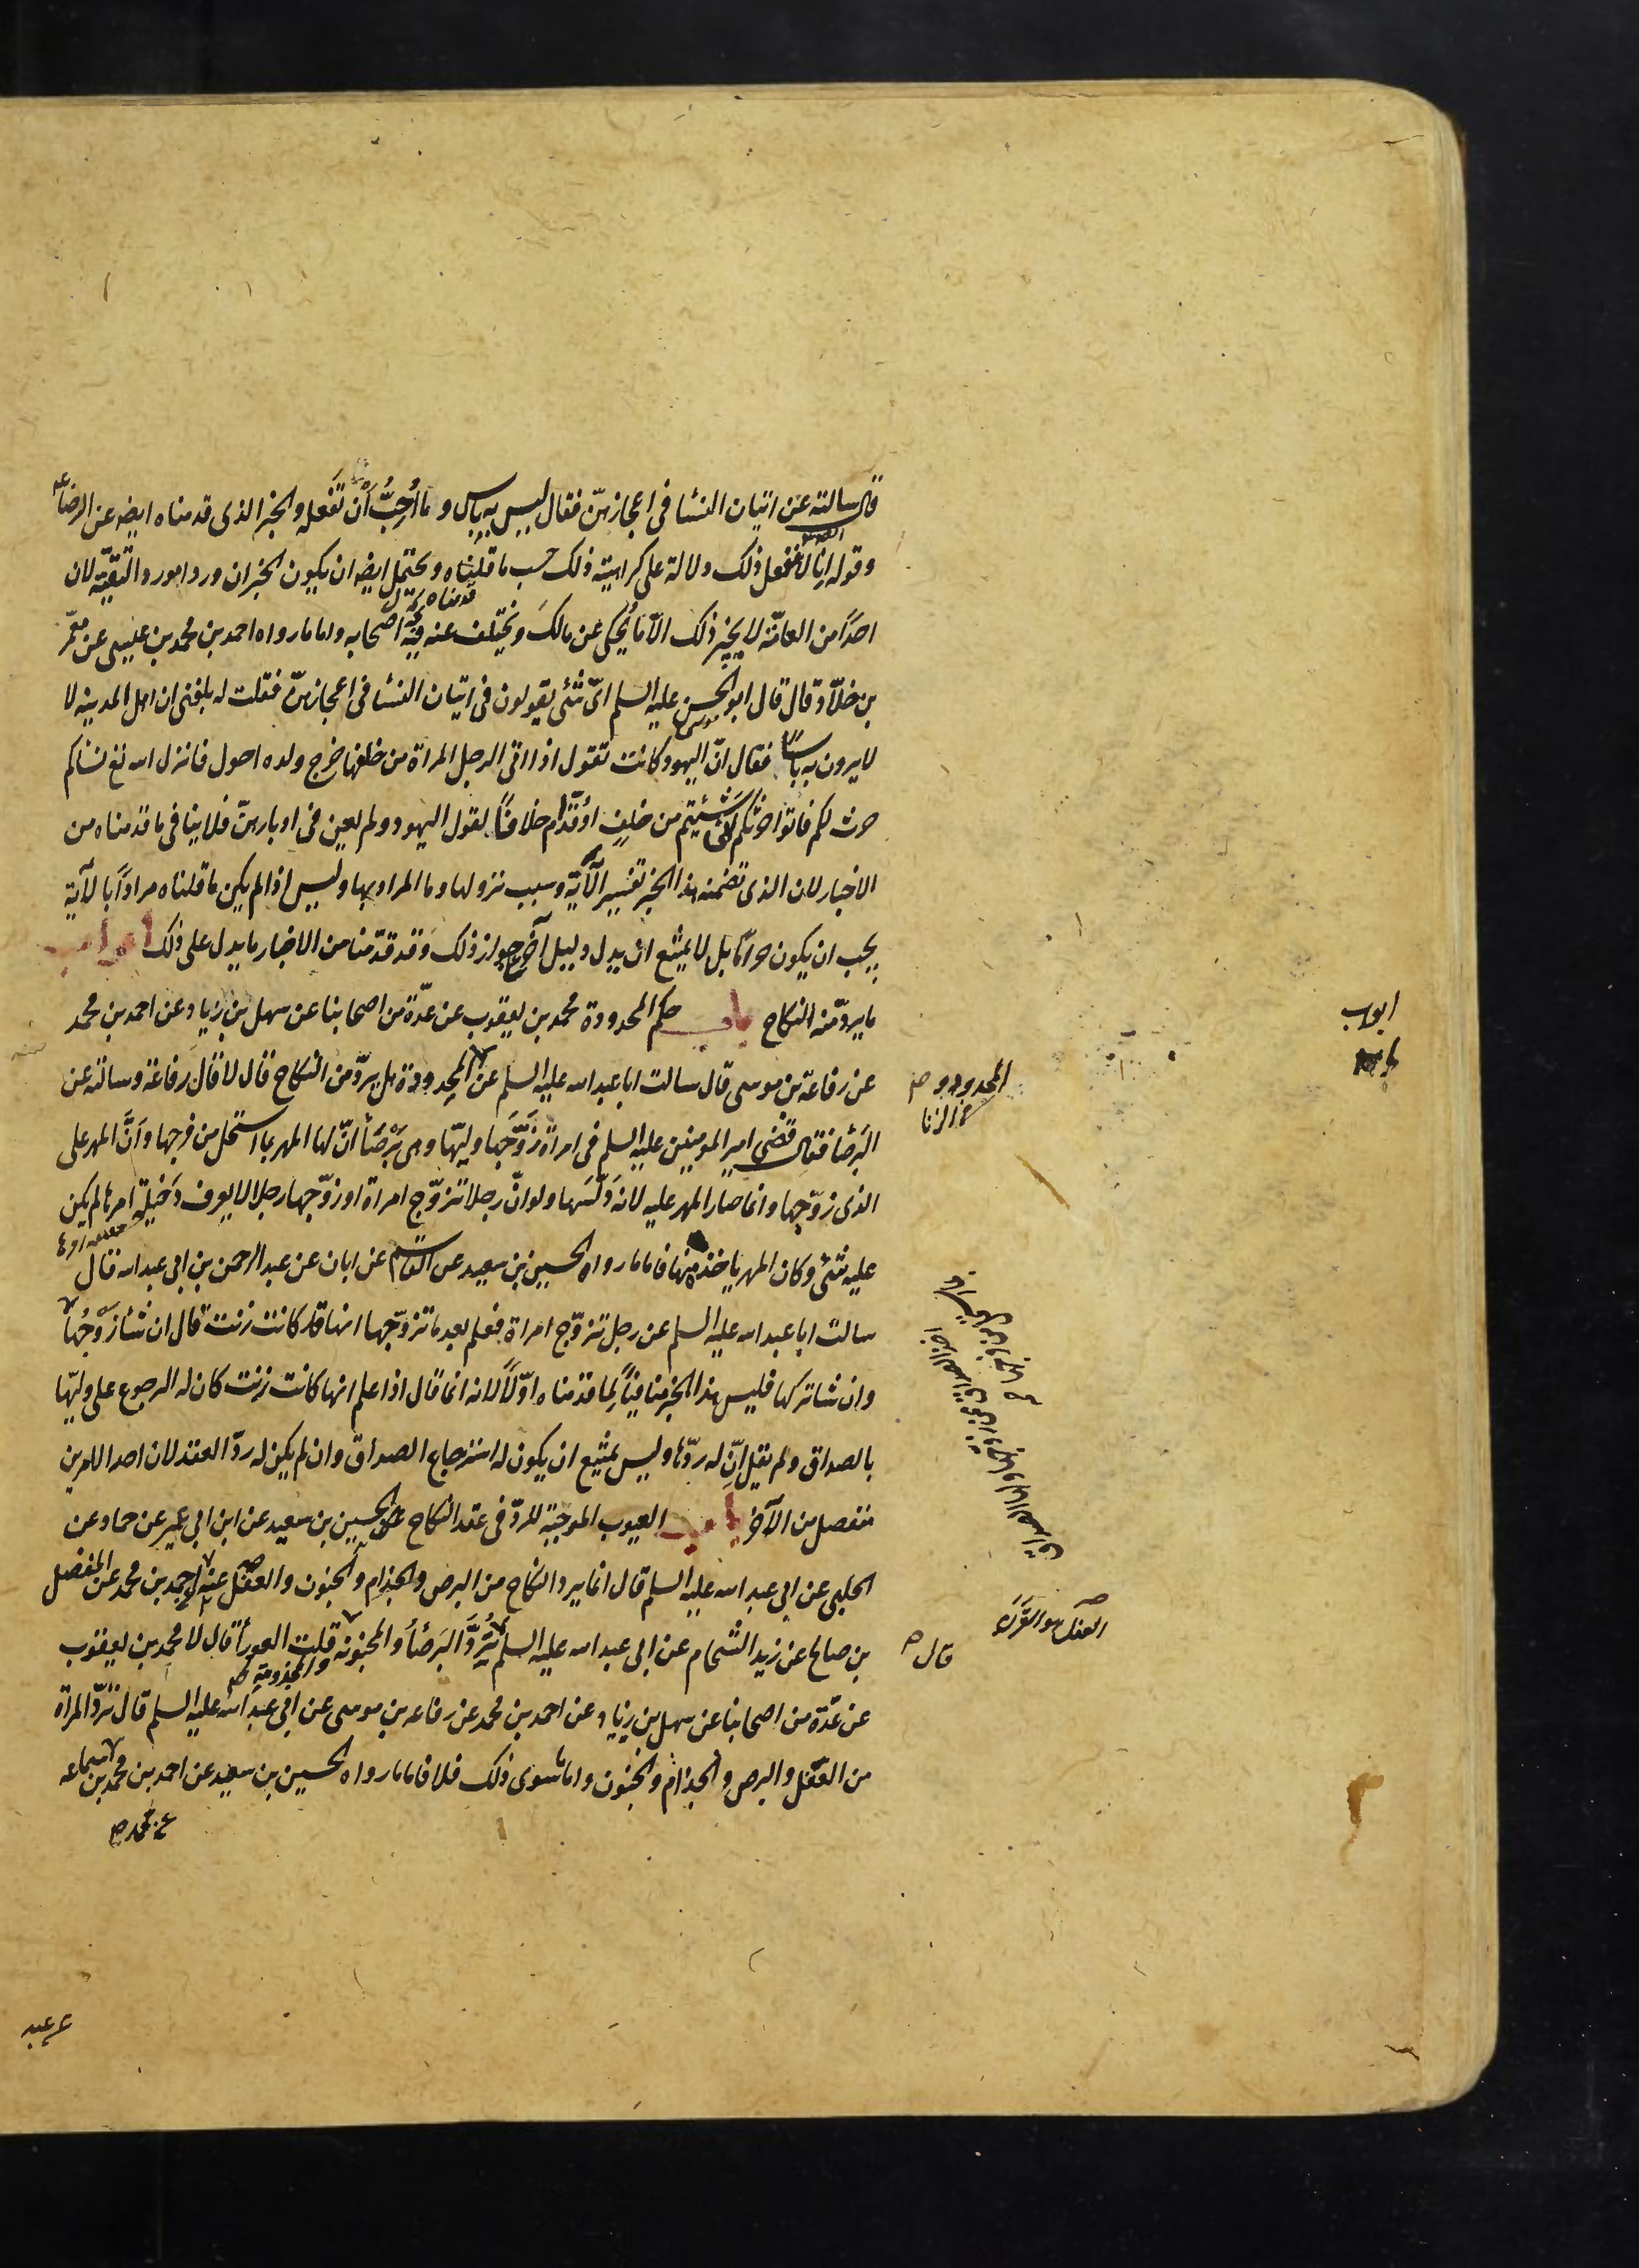 قال سالته عن اتيان النسا فى اعجازهن فقال ليس به باس و ما اُحِبُّ اَن تَفعله و الخبر الذى قدمناه ايضه عن الرضا ع
و قوله انا لا نفعل ذلك دلالة على كراهية ذلك حسب ما قلناه و يحتمل ايضه ان يكون الخبران وردا مورد التقيّه لان
قدمناه
احدًا من العامّة لا يجيز ذلك الّا ما يُحكى عن مالكَ و يختلف عنه فيه اصحابه و اما ما رواه احمد بن محمد بن عيسى عن معمّر
بن خلّاد قال قال ابو الحسن عليه السلم اىّ شئى يقولون فى اتيان النسا فى اعجازهنّ فقلت له بلغنى ان اهل المدينه لا
لا يرون به باسًا فقال انّ اليهود كانت تقول اذا اتى الرجل المراة من خلفها خرج ولده احول فانزل اسه تع نساكم
حرث لكم فاتوا حرثكم انّى شئيتم من خلفٍ او قدّام خلافًا لقول اليهود و لم يعن فى ادبارهنّ فلا ينافى ما قدمناه من
الاخبار لان الذى تضمنه هذا الخبر تفسير الآية و سبب نزولها و ما المراد بها و ليس اذا لم يكن ما قلناه مرادًا بالآية
يجب ان يكون حرامًا بل لا يمتنع ان يدل دليل آخر ع جواز ذلك و قد قدّمنا من الاخبار ما يدل على ذلك ابواب
ما يردّ منه النكاح باب حكم المحدودة محمد بن يعقوب عن عدّة من اصحابنا عن سهل بن زياد و عن احمد بن محمد
عن رفاعة بن موسى قال سالت ابا عبد اسه عليه السلم عن المحدودة هل يردّ من النكاح قال لا قال رفاعة و سالته عن
البَرصا فقال قضى امير المومنين عليه السلم فى امراة زَوّجَها وليّها و هى بَرْصَا انّ لها المهر بما استحل من فرجها و اَنّ المهر على
الذى زوّجها و انما صار المهر عليه لانه دَلّسَها و لو انّ رجلا تزوّج امراة او زوّجها رجلا لا يعرف دَخيلة امرها لم يكن
عليه شئى و كان المهر ياخذه منها فاما ما رواه الحسين بن سعيد عن القاسم عن ابان عن عبد الرحمن بن ابى عبد اسه قال
سالت ابا عبد اسه عليه السلم عن رجل تزوّج امراة فعلم بعد ما تزوّجها انها قد كانت زنت قال ان شا زَوْجُها
و ان شا تركها فليس هذا الخبر منافيًا لِما قدمناه اوّلًا لانه انما قال اذا علم انها كانت زنت كان له الرجوع على وليّها
بالصداق و لم نقل انّ له ردّها و ليس يمتنع ان يكون له استرجاع الصداق و ان لم يكن له ردّ العقد لان احد الامرين
منفصل من الآخر باب العيوب الموجبة للردّ فى عقد النكاح الحسين بن سعيد عن ابن ابى عمير عن حماد عن
الحلبى عن ابى عبد اسه عليه السلم قال انما يرد النكاح من البرص و الجذام و الجنون و العفل عنه احمد بن محمد عن المفضل
بن صالح عن زيد الشحام عن ابى عبد اسه عليه السلم تُرَدّ البَرصا و المجنونه قلت العورا قال لا محمد بن يعقوب
و المجذومة صح
عن عدّة من اصحابنا عن سهل بن زياد و عن احمد بن محمد عن رفاعه بن موسى عن ابى عبد اسه عليه السلم قال تردّ المراة
من العفل و البرص و الجذام و الجنون و اما سوى ذلك فلا فاما ما رواه الحسين بن سعيد عن احمد بن محمد بن سماعه
ابواب
المحدود و
الزنا
العفل هو القَرَن
قال
عن محمد
عن عبد